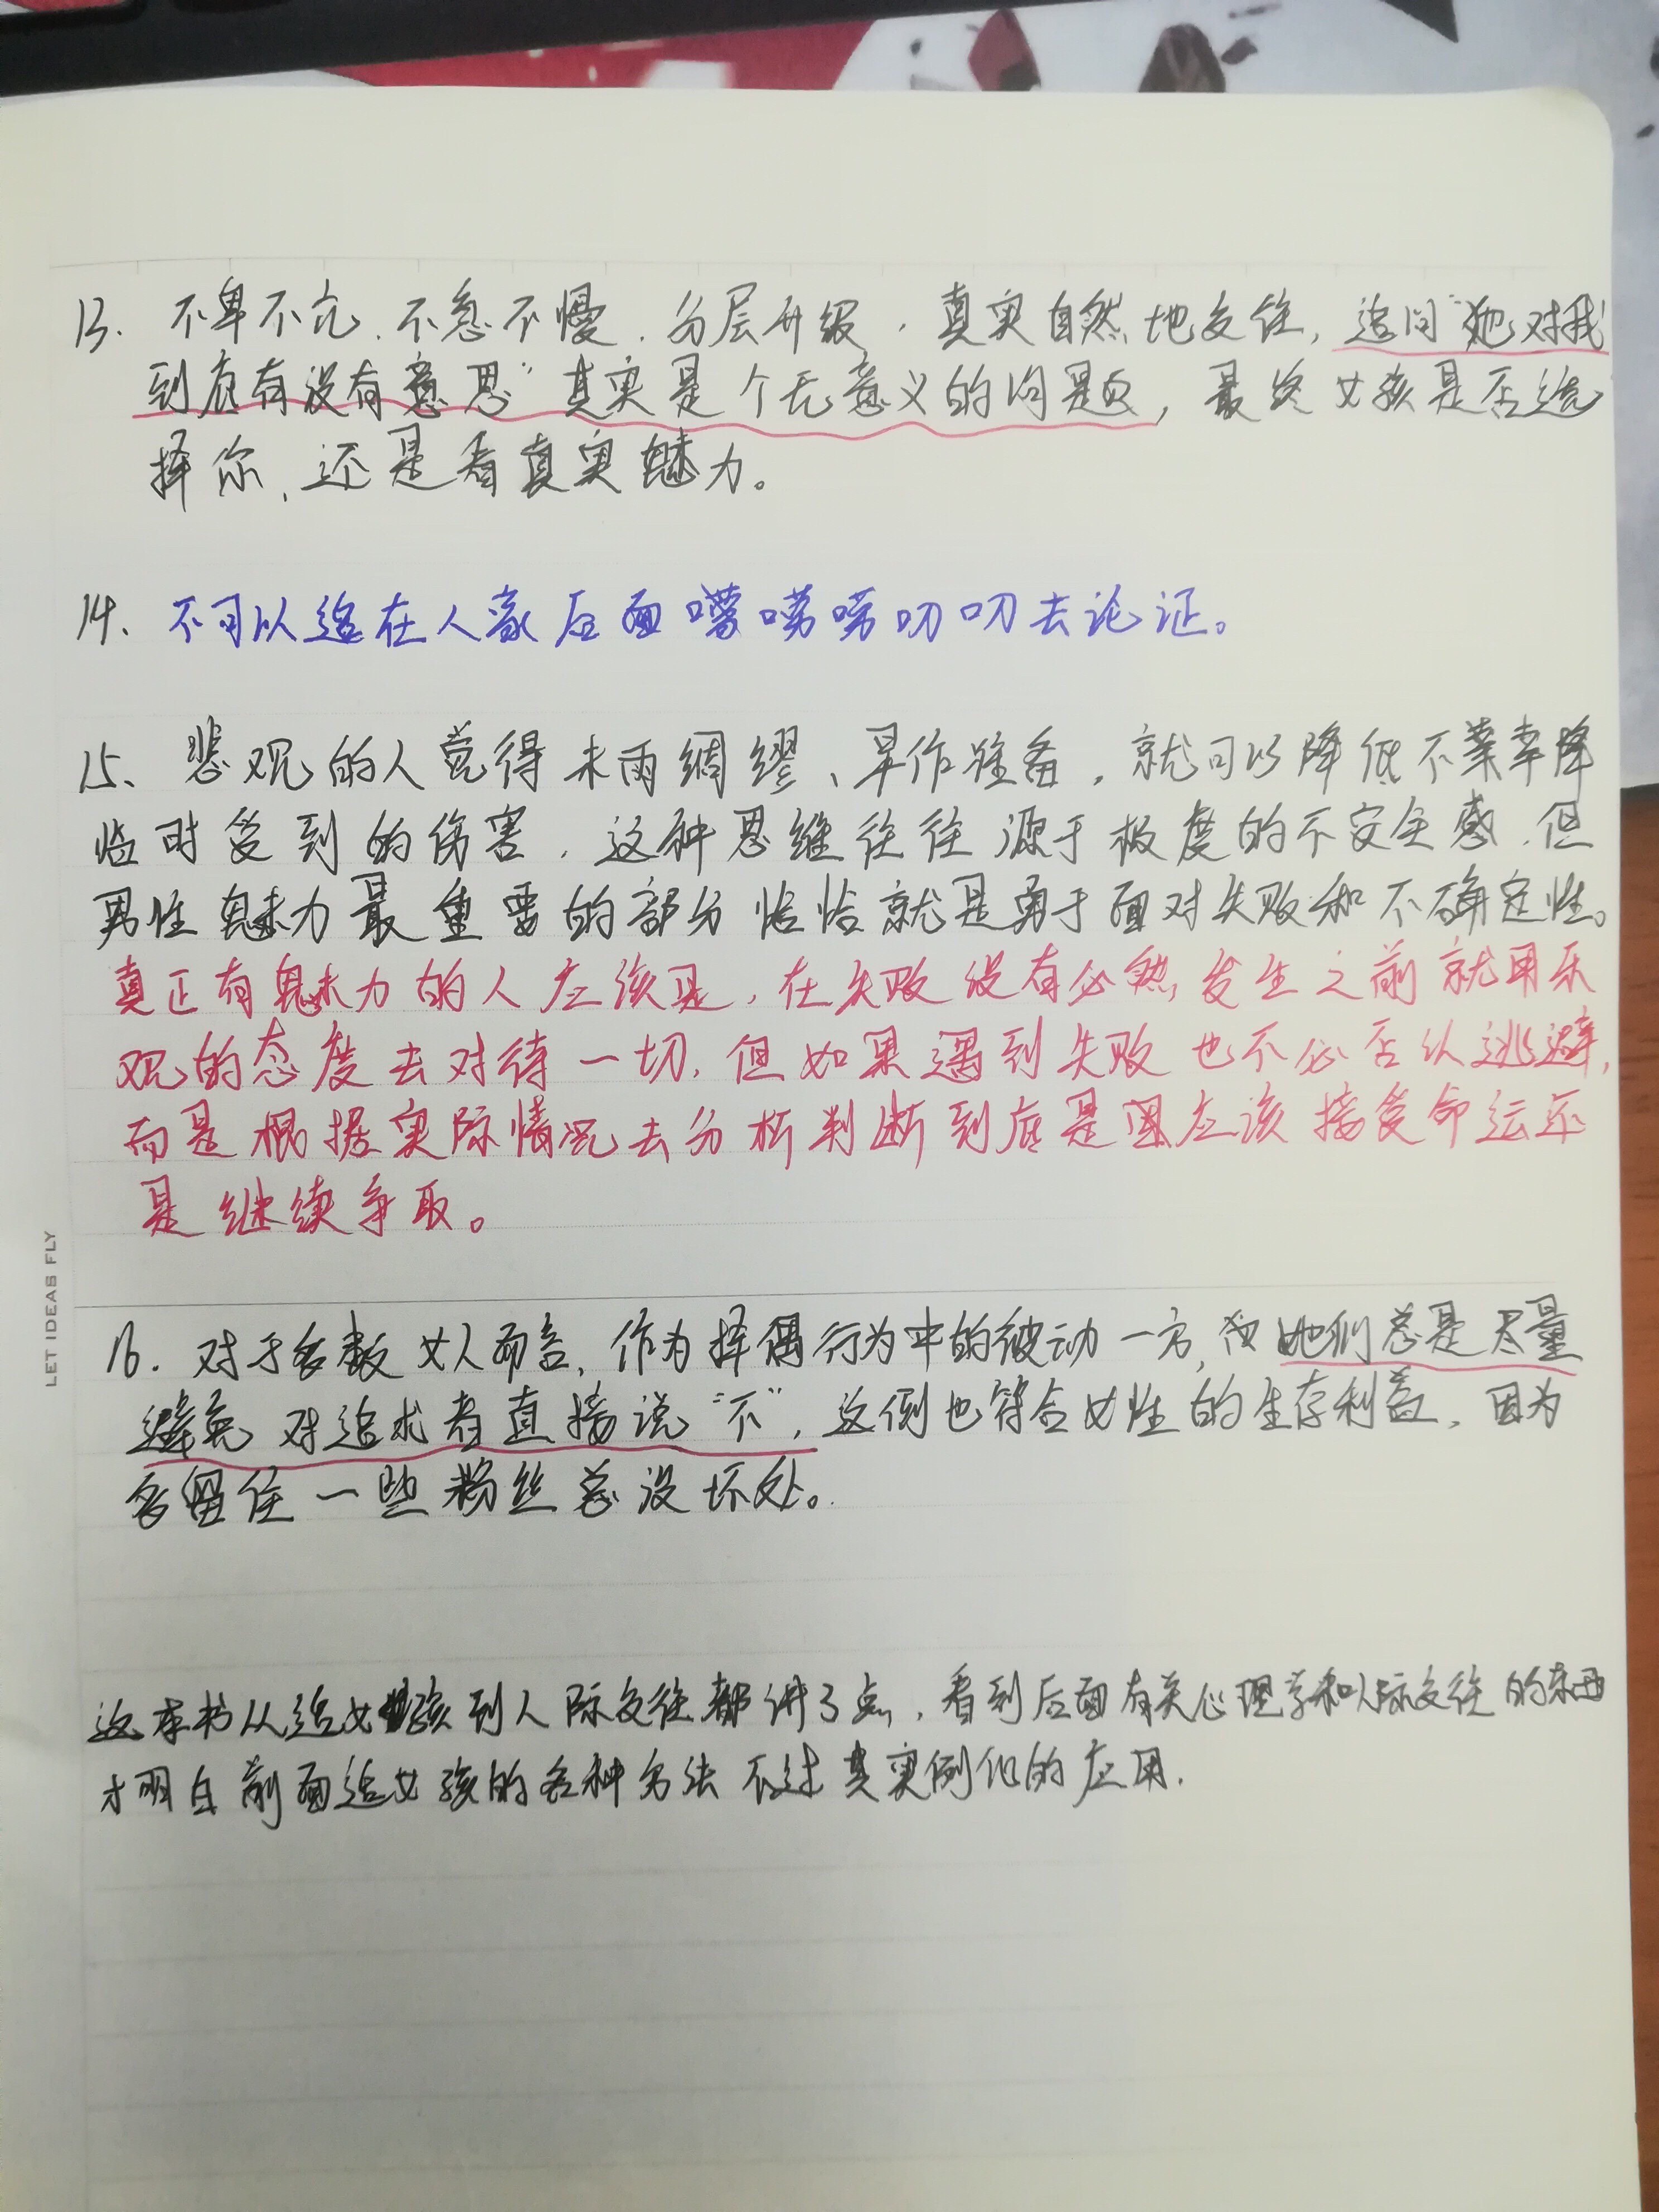 13. 不卑不亢、不急不慢、分层升级，真实自然地交往，追问“她对我
到底有没有意思”其实是个无意义的问题，最终女孩是否选
择你，还是看真实魅力。
14、不可以追在人家后面唠唠唠叨叨去论证。
15、悲观的人觉得未雨绸缪、早作准备，就可以降低不幸降
临时受到的伤害，这种思维往往源于极度的不安全感，但
男性魅力最重要的部分恰恰就是勇于面对失败和不确定性。
真正有魅力的人应该是，在失败没有必然发生之前就用乐
观的态度去对待一切，但如果遇到失败也不必否认逃避，
而是根据实际情况去分析判断到底是应该接受命运还
是继续争取。
16. 对于多数女人而言，作为择偶行为中的被动一方，她们总是尽量
避免对追求者直接说“不”，这倒也符合女性的生存利益，因为
多留住一些粉丝总没坏处。
这本书从追女孩到人际交往都讲了点，看到后面有关心理学和人际交往的东西
才明白前面追女孩的各种方法不过其实例化的应用.
LET IDEAS FLY